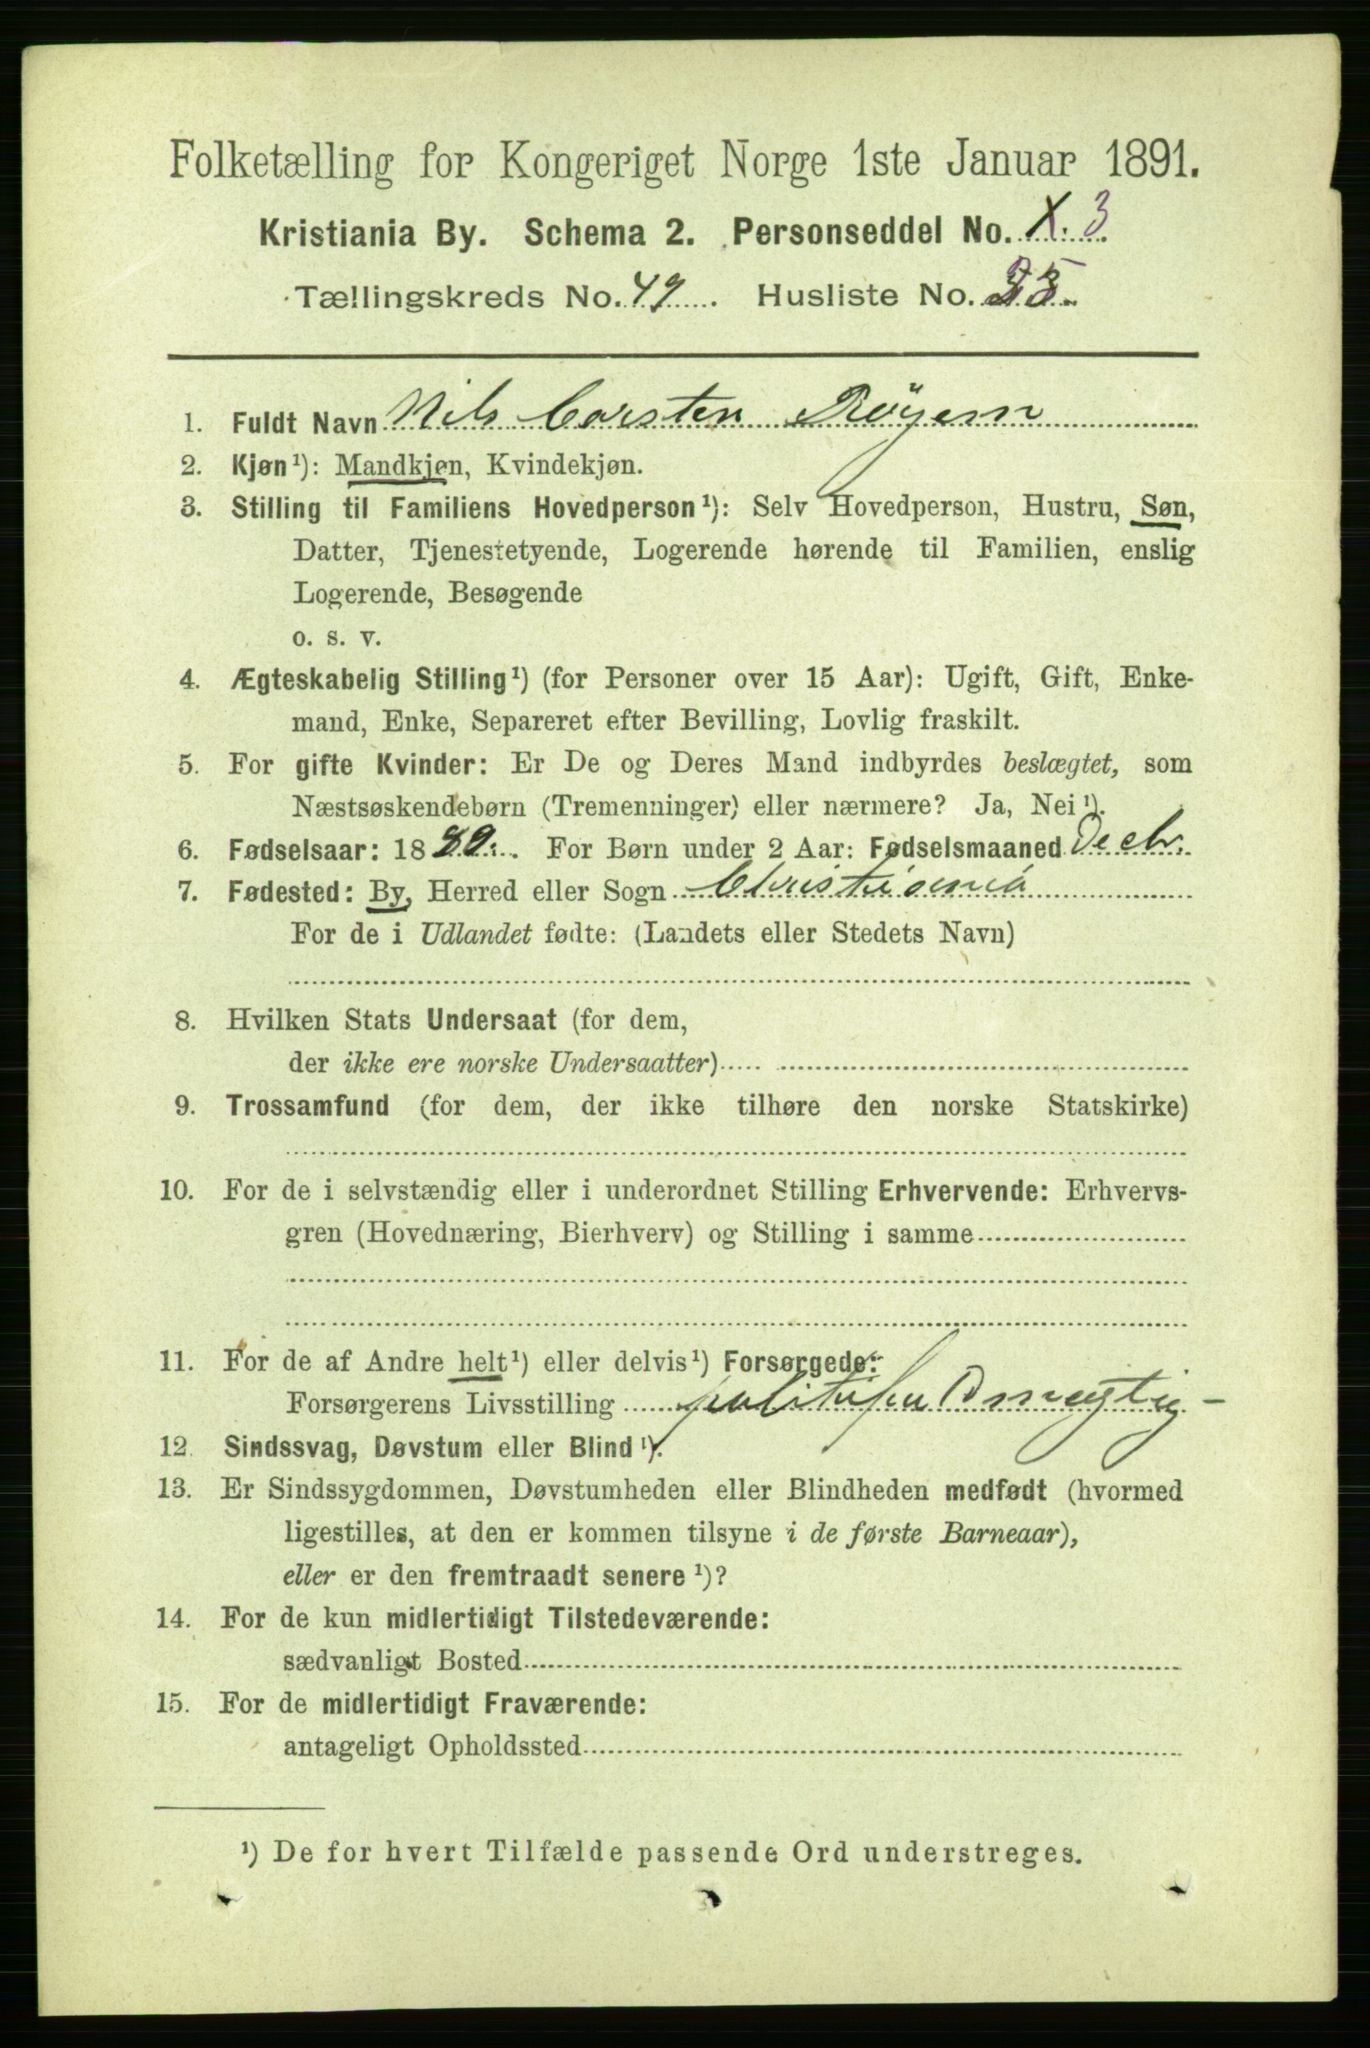 Folketælling for Kongeriget Norge 1ste Januar 1891.
Kristiania By. Schema 2. Personseddel No. X. 3
Tællingskreds No. 49. Husliste No. 35.
1. Fuldt Navn Nils Carsten Röyem
2. Kjøn¹): Mandkjøn, Kvindekjøn.
3. Stilling til Familiens Hovedperson¹): Selv Hovedperson, Hustru, Søn,
Datter, Tjenestetyende, Logerende hørende til Familien, enslig
Logerende, Besøgende
o. s. v.
4. Ægteskabelig Stilling¹) (for Personer over 15 Aar): Ugift, Gift, Enke-
mand, Enke, Separeret efter Bevilling, Lovlig fraskilt.
5. For gifte Kvinder: Er De og Deres Mand indbyrdes beslægtet, som
Næstsøskendebørn (Tremenninger) eller nærmere? Ja, Nei¹).
6. Fødselsaar: 1889. For Børn under 2 Aar: Fødselsmaaned Decbr.
7. Fødested: By, Herred eller Sogn Christiania
For de i Udlandet fødte: (Landets eller Stedets Navn)
8. Hvilken Stats Undersaat (for dem,
der ikke ere norske Undersaatter)
9. Trossamfund (for dem, der ikke tilhøre den norske Statskirke)
10. For de i selvstændig eller i underordnet Stilling Erhvervende: Erhvervs-
gren (Hovednæring, Bierhverv) og Stilling i samme
11. For de af Andre helt¹) eller delvis¹) Forsørgede:
Forsørgerens Livsstilling
12. Sindssvag, Døvstum eller Blind¹).
13. Er Sindssygdommen, Døvstumheden eller Blindheden medfødt (hvormed
ligestilles, at den er kommen tilsyne i de første Barneaar),
eller er den fremtraadt senere¹)?
14. For de kun midlertidigt Tilstedeværende:
sædvanligt Bosted
15. For de midlertidigt Fraværende:
antageligt Opholdssted
¹) De for hvert Tilfælde passende Ord understreges.